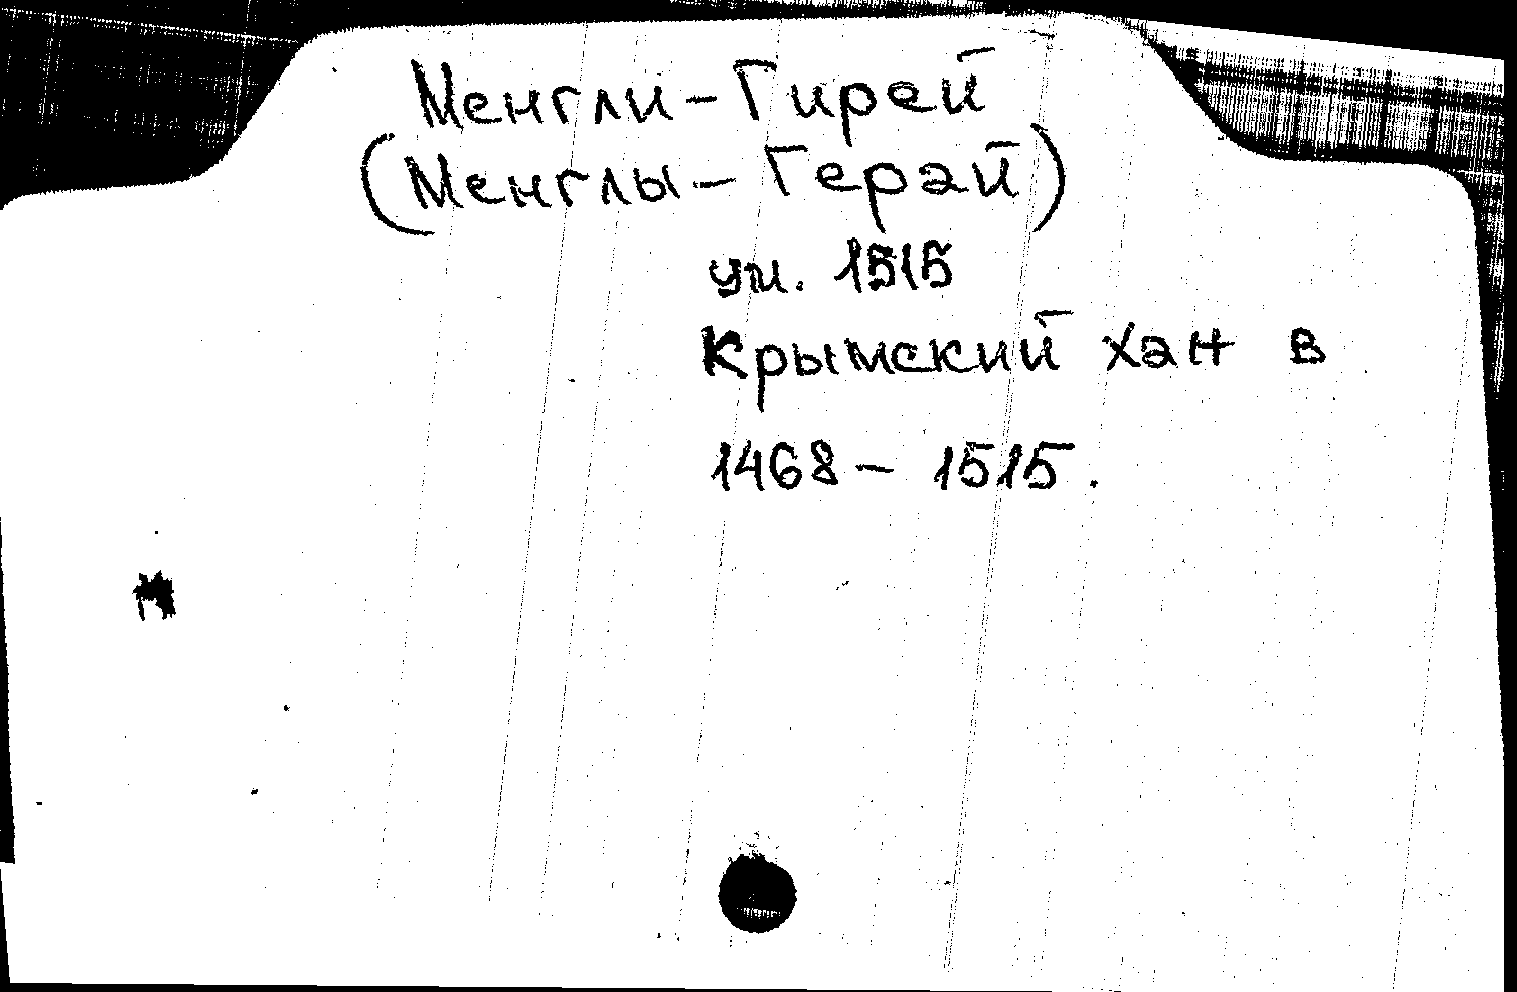 Менгли-Гирей
(Менглы-Герай)
ум. 1515
Крымский хан в
1468 - 1515.